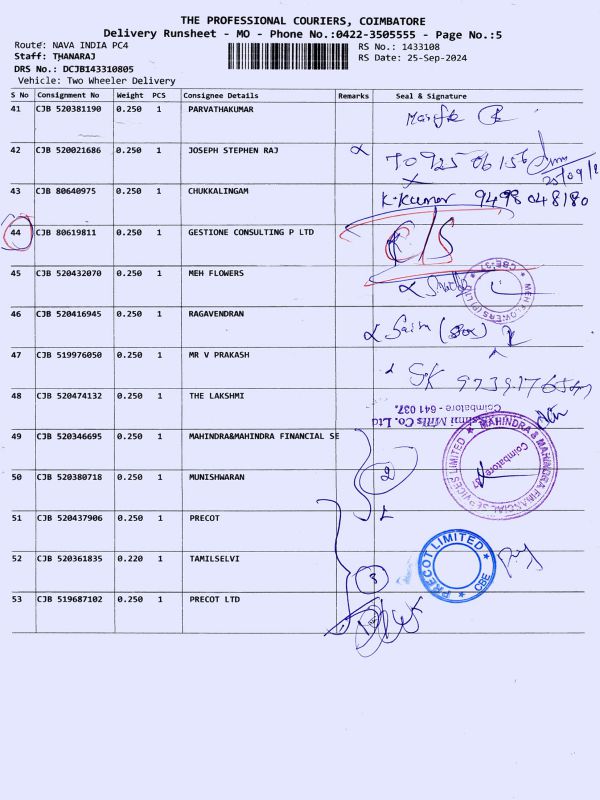 THE PROFESSIONAL COURIERS, COIMBATORE
Delivery Runsheet - MO - Phone No.:0422-3505555 - Page No.:5
Route: NAVA INDIA PC4
RS No.: 1433108
Staff: THANARAJ
RS Date: 25-Sep-2024
DRS No.: DCJB143310805
Vehicle: Two Wheeler Delivery
S No Consignment No Weight PCS Consignee Details Remarks Seal & Signature
41 CJB 520381190 0.250 1 PARVATHAKUMAR
42 CJB 520021686 0.250 1 JOSEPH STEPHEN RAJ
43 CJB 80640975 0.250 1 CHUKKALINGAM K.Kumar 9498048180
44 CJB 80619811 0.250 1 GESTIONE CONSULTING P LTD
45 CJB 520432070 0.250 1 MEH FLOWERS
MEH FLOWERS (P) LTD CBE-37
46 CJB 520416945 0.250 1 RAGAVENDRAN
47 CJB 519976050 0.250 1 MR V PRAKASH
48 CJB 520474132 0.250 1 THE LAKSHMI
Mills Co. Ltd
Coimbatore - 641 037.
49 CJB 520346695 0.250 1 MAHINDRA&MAHINDRA FINANCIAL SE
MAHINDRA & MAHINDRA FINANCIAL SERVICES LIMITED
50 CJB 520380718 0.250 1 MUNISHWARAN 2
51 CJB 520437906 0.250 1 PRECOT
52 CJB 520361835 0.220 1 TAMILSELVI 3
PRECOT LIMITED CBE
53 CJB 519687102 0.250 1 PRECOT LTD